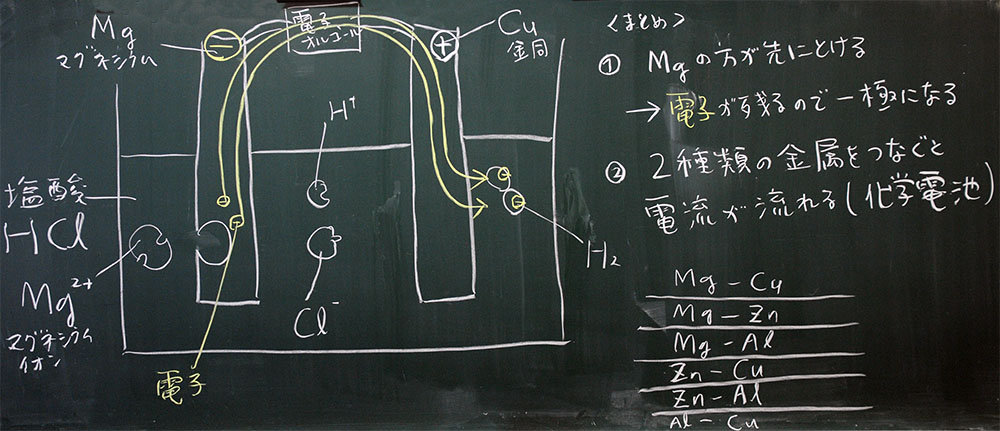 Mg
マグネシウム
−
電子
オルゴール
+
Cu
金同
H⁺
塩酸
HCl
Mg²⁺
マグネシウム
イオン
Cl⁻
H₂
電子
<まとめ>
① Mgの方が先にとける
→ 電子が残るので−極になる
② 2種類の金属をつなぐと
電流が流れる(化学電池)
Mg − Cu
Mg − Zn
Mg − Al
Zn − Cu
Zn − Al
Al − Cu